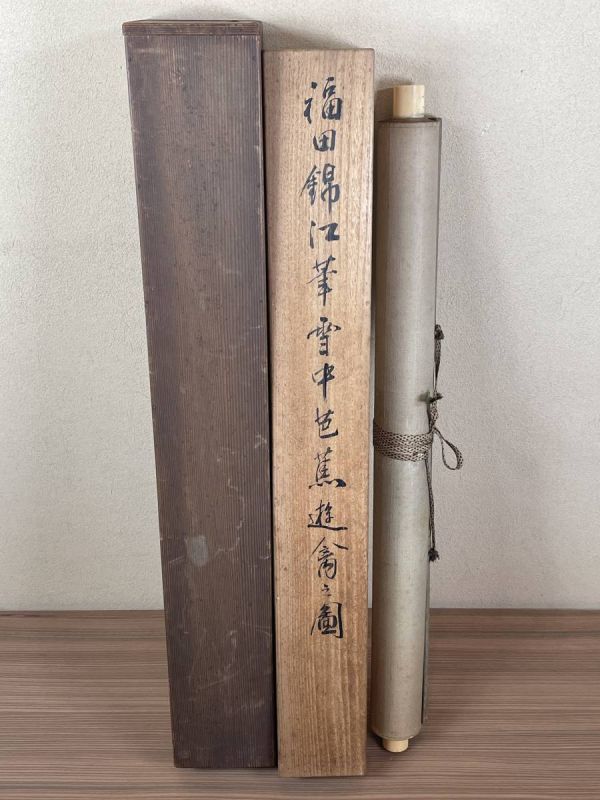 福田錦江筆雪中芭蕉遊禽之圖